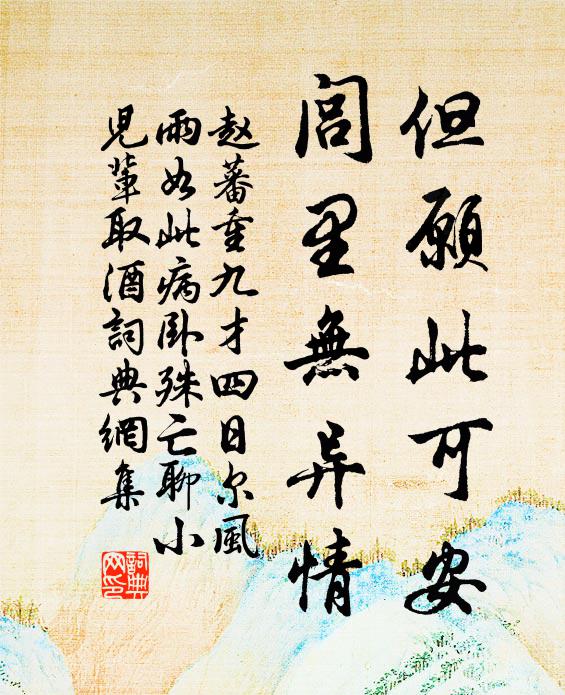 但願此可安
閭里無异情
趙蕃重九才四日尔風
雨如此病卧殊亡聊小
児輩取酒詞典網集
詞典网印